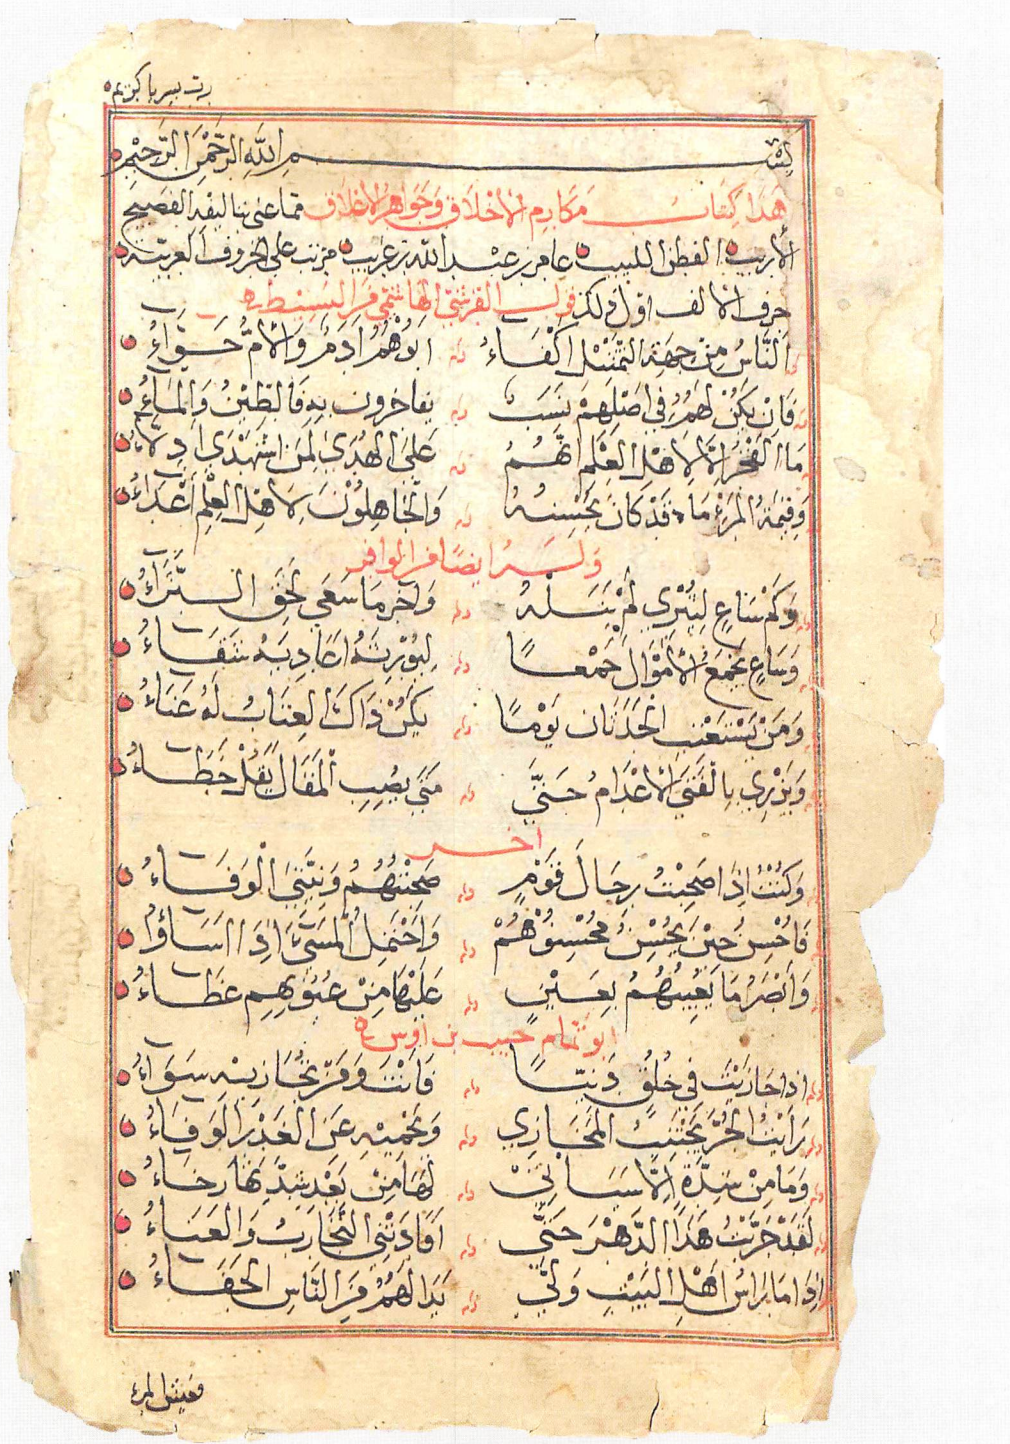 رب يسر يا كريم
بسم الله الرحمن الرحيم
هذا كتاب مكارم الأخلاق وجواهر الاعلاق مما عني بتاليفه الفصيح
الأريب الفطن اللبيب عامر بن عبد الله بن غريب مرتب على الحروف العربية
حرف الالف اول ذلك قول القرشي الهاشمي من البسيط
النَّاسُ مِنْ جِهَةِ التَّمْثِيْلِ اَكْفَاءُ اَبُوْهُمُ اَدَمٌ وَالْأُمُّ حَوَّاءُ
فَاِنْ يَكُنْ لَهُمُ فِي اَصْلِهِمْ نَسَبٌ يفاخرون بِهِ فَالطِّيْنُ وَالْمَاءُ
مَا الْفَخْرُ اِلَّا لِاَهْلِ الْعِلْمِ اِنَّهُمُ عَلَى الْهُدَى لِمَنِ اسْتَهْدَى اَدِلَّاءُ
وَقِيْمَةُ الْمَرْءِ مَا قَدْ كَانَ يُحْسِنُهُ وَالْجَاهِلُوْنَ لِاَهْلِ الْعِلْمِ اَعْدَاءُ
وله ايضا من الوافر
وَكَمْ سَاعٍ لِيُثْرِي لَمْ يَنَلْهُ وَآخَر مَا سَعَى لَحِقَ الثَّرَاءُ
وَسَاعٍ يَجْمَعُ الْأَمْوَالَ جَمْعًا لِيُوْرِثَهُ اَعَادِيَهُ شَقَاءُ
وَمَنْ يَسْتَعْتِبِ الْحَدَثَانَ يَوْمًا يَكُنْ ذَاكَ الْعِتَابُ لَهُ عَنَاءُ
وَيُزْرِي بِالْفَتَى الْأَعْدَامُ حَتَّى مَتَى يُصِبِ الْمَقَالَ يُقَلْ خَطَاءُ
اخر
وَكُنْتُ اِذَا صَحِبْتُ رِجَالَ قَوْمٍ صَحِبْتُهُمُ وَنِيَّتِيَ الْوَفَاءُ
فَاُحْسِنُ حِيْنَ يُحْسِنُ مُحْسِنُوْهُمْ وَاَحْتَمِلُ الْمَسَىءَ اِذَا اَسَاؤُا
وَاَبْصُرُ مَا يَعِيْبُهُمُ بِعَيْنٍ عَلَيْهَا مِنْ عُيُوْبِهِمِ غَطَاءُ
ابو تمام حبيب بن اوس
اذا جاريتَ في خُلُقٍ دَنِيًّا فَاَنْتَ وَمَنْ تُجَازِيْهِ سَوَاءُ
رَاَيْتُ الْحُرَّ يَجْتَنِبُ الْمَخَازِي وَيَحْمِيْهِ عَنِ الْغَدْرِ الْوَفَاءُ
وَمَا مِنْ شِدَّةٍ اِلَّا سَيَاتِيْ لَهَا مِنْ بَعْدِ شِدَّتِهَا رَخَاءُ
لَقَدْ جَرَّبْتُ هَذَا الدَّهْرَ حَتَّى اَفَادَتْنِي التَّجَارِبُ وَالْعَنَاءُ
اِذَا مَا رَاْسُ اَهْلِ الْبَيْتِ وَلَّى بَدَا لَهُمُ مِنَ النَّاسِ الْجَفَاءُ
يعيش المرء